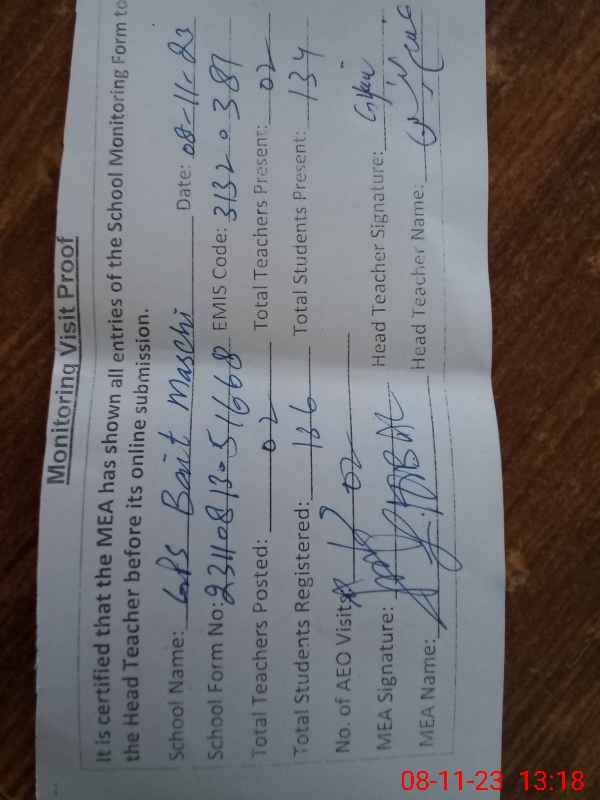 Monitoring Visit Proof
It is certified that the MEA has shown all entries of the School Monitoring Form to
the Head Teacher before its online submission.
School Name: GPS Bait Maschi Date: 08-11-23
School Form No: EMIS Code: 31320381
Total Teachers Posted: 02 Total Teachers Present: 02
Total Students Registered: 136 Total Students Present: 134
No. of AEO Visits: 02
MEA Signature: Head Teacher Signature:
MEA Name: Head Teacher Name:
08-11-23 13:18